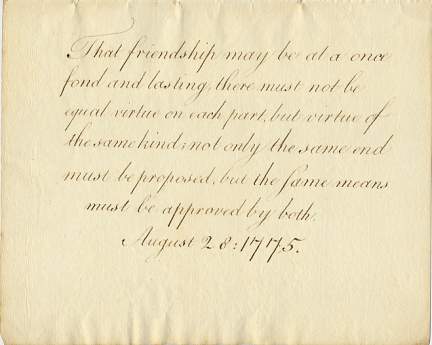 That friendship may be at a once
fond and lasting, there must not be
equal virtue on each part, but virtue of
the same kind; not only the same end
must be proposed, but the same means
must be approved by both.
August 28: 1775.